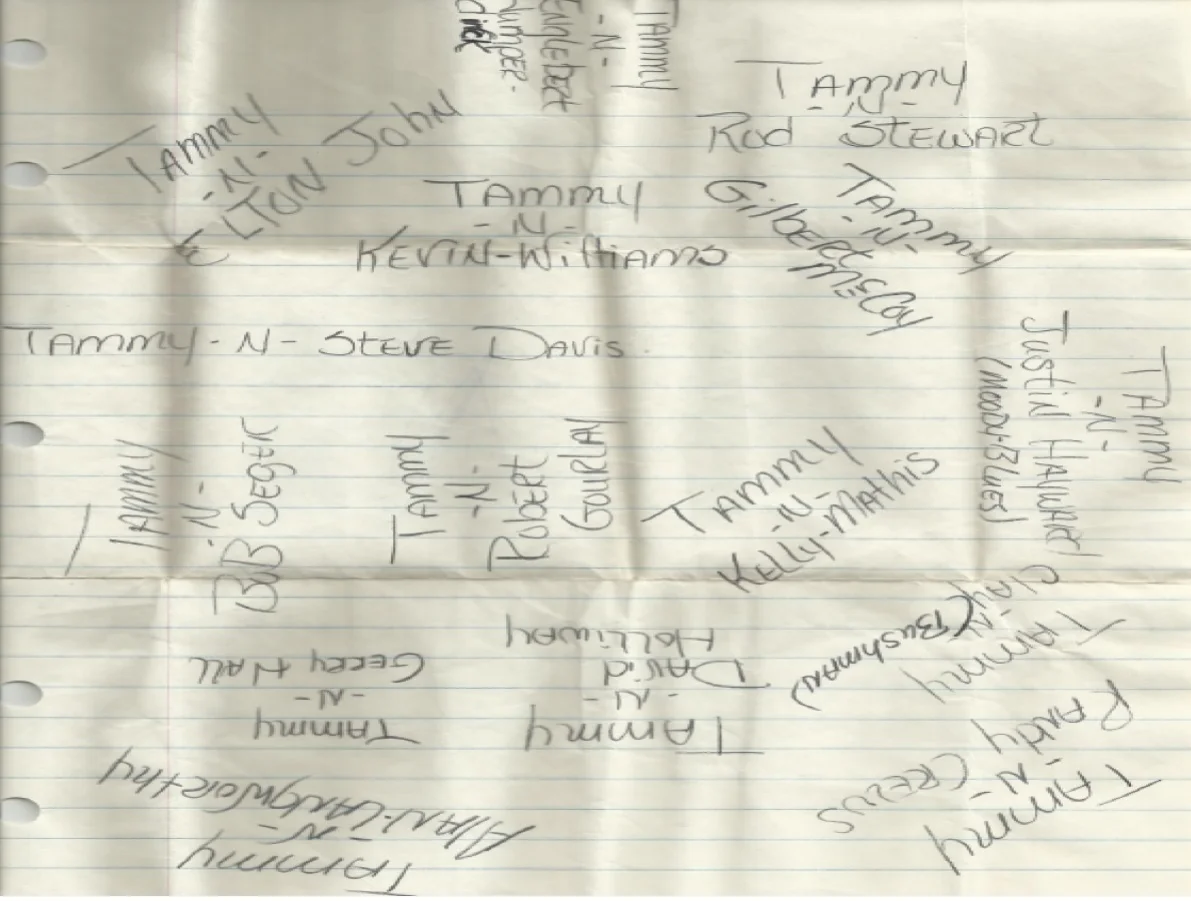 TAMMY
-N-
ENGLEBERT
HUMPER-
dinck
TAMMY
-N-
Rod STEWART
TAMMY
-N-
ELTON JOHN
TAMMY
-N-
KEVIN-Williams
TAMMY
-N-
GilbERT
McCoy
TAMMY-N- STEVE DAVIS.
JUSTIN HAYWARD
(MOODY-BLUES)
TAMMY
-N-
TAMMY
-N-
BOB SEGER
TAMMY
-N-
RobERT
GOURLAY
TAMMY
-N-
KELLY-MATHIS
TAMMY
-N-
CLAY
(BUSHMAN)
TAMMY
-N-
GERRY HALL
TAMMY
-N-
DAVID
HOLLIWAY
TAMMY
-N-
RANDY
TAMMY
-N-
AlAN-LANGWORthy